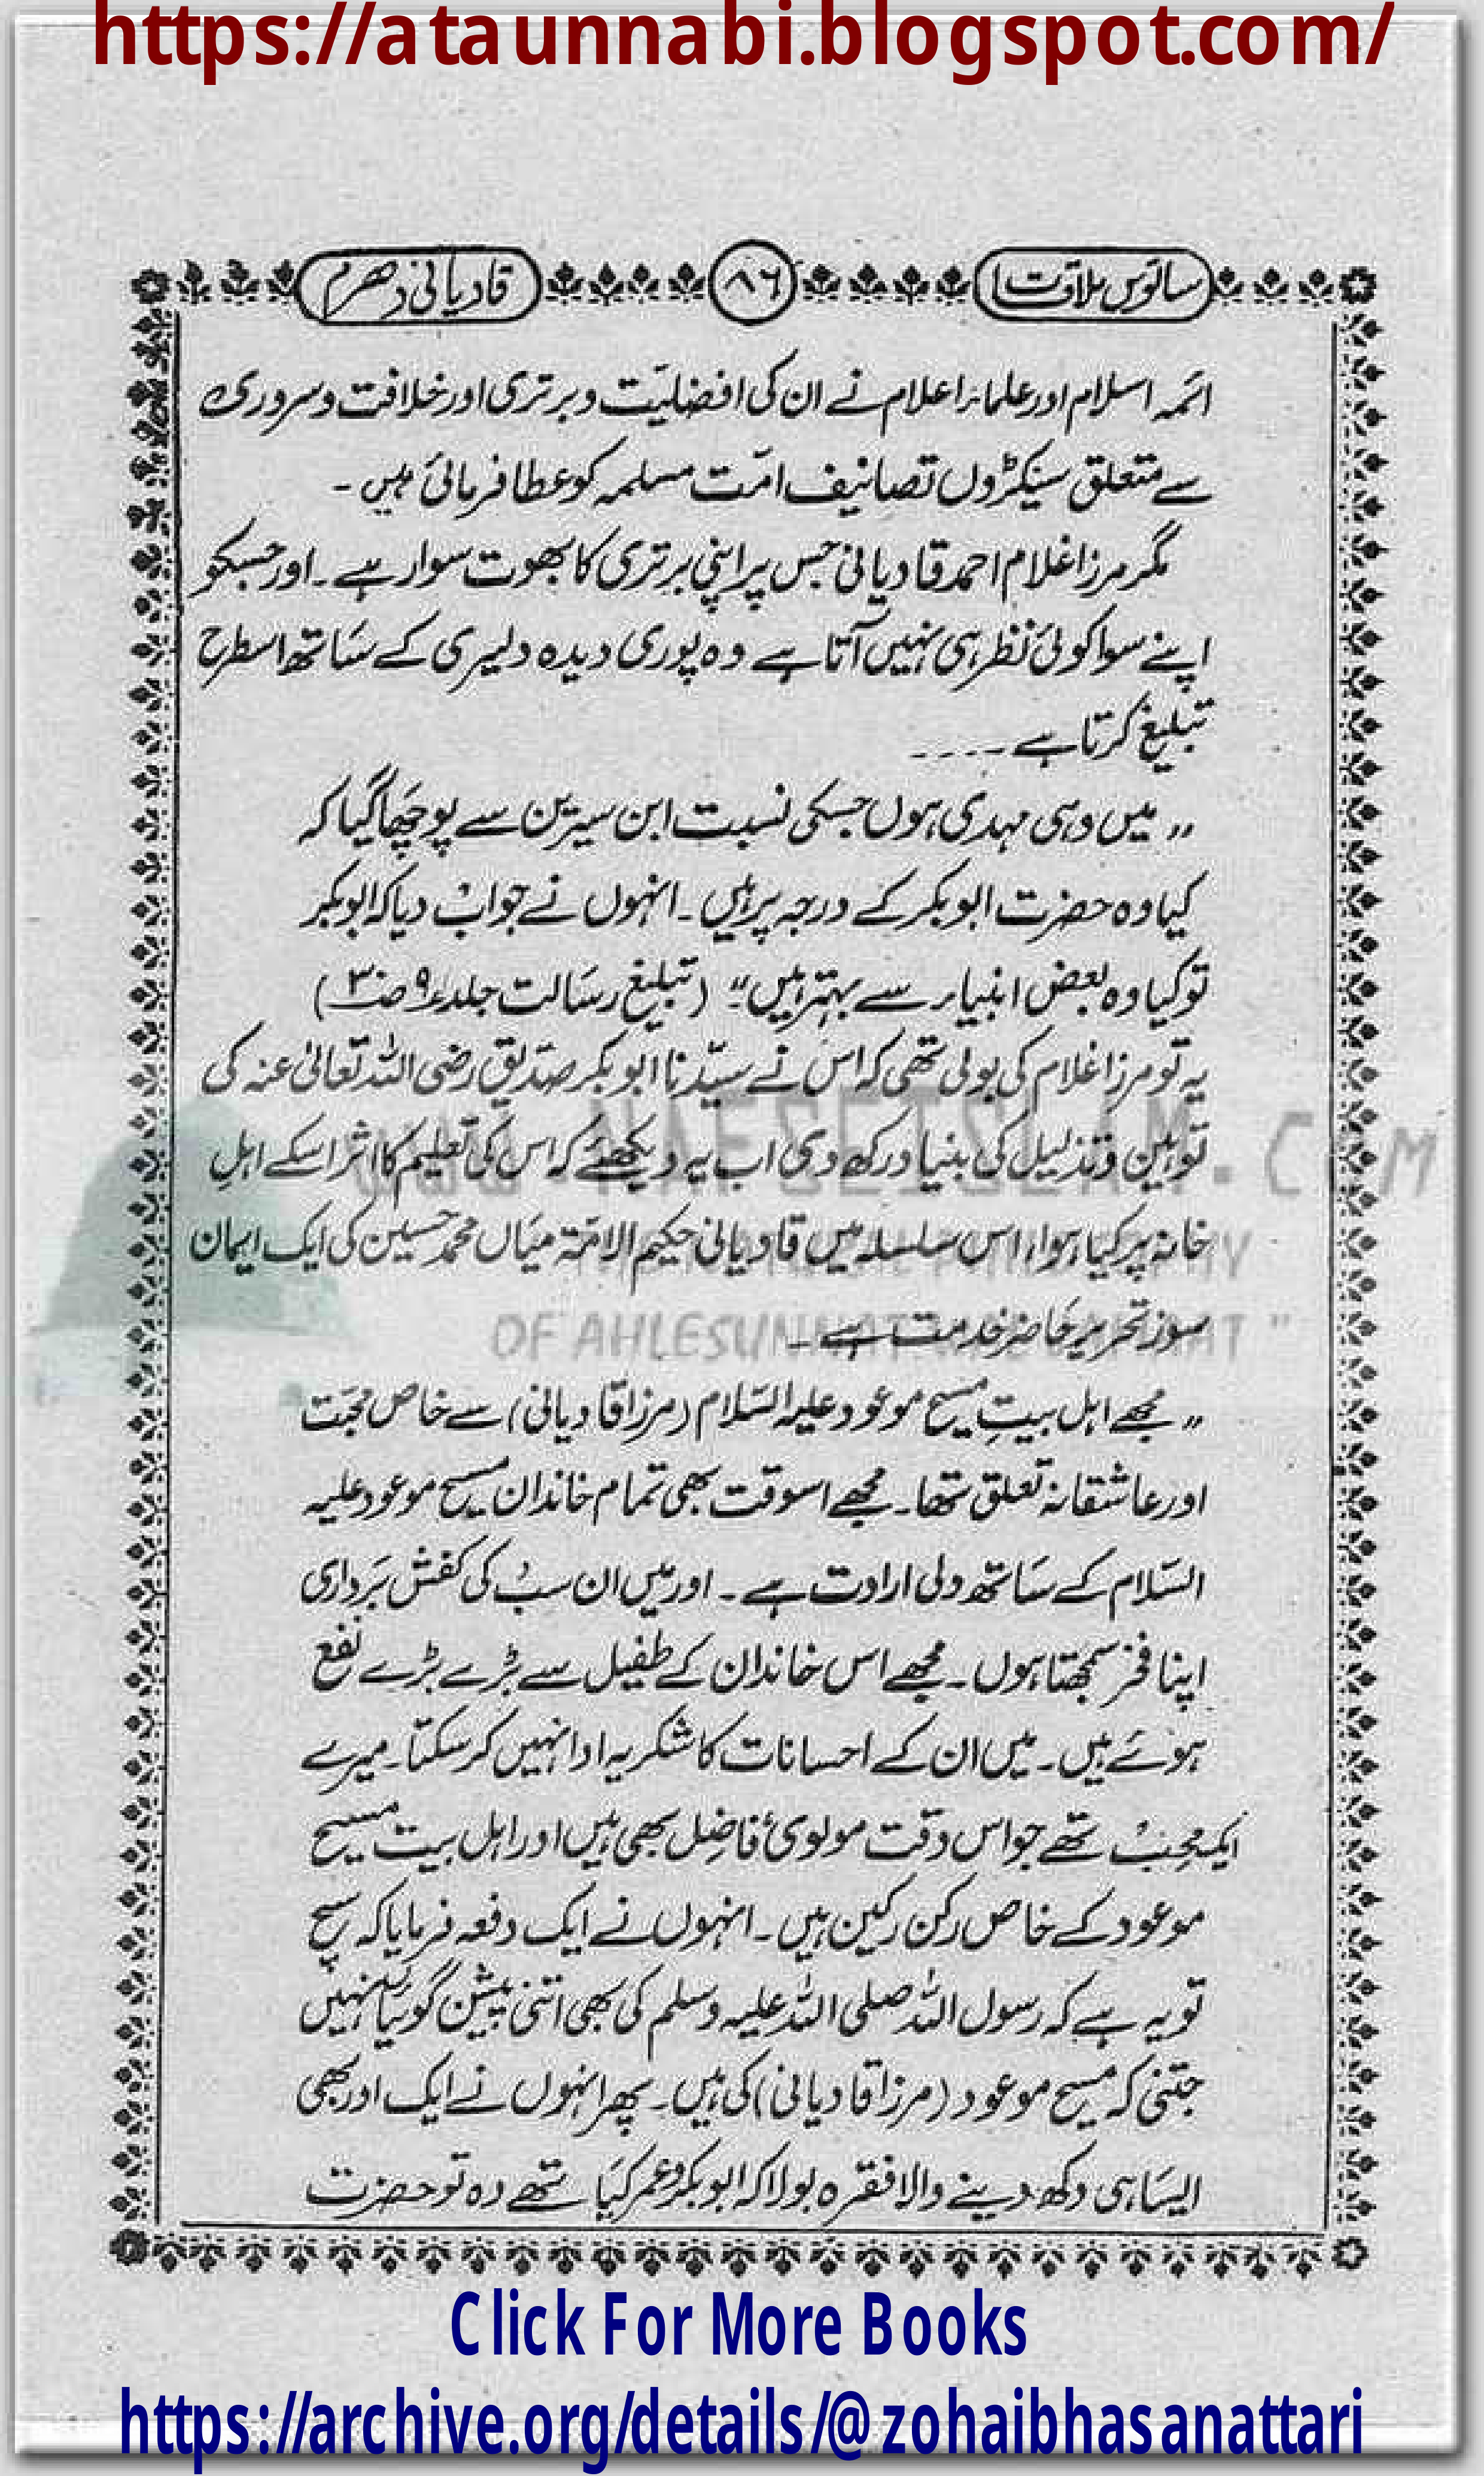 https://ataunnabi.blogspot.com/
ساتویں ملاقت ۸۶ قادیانی دھرم
ائمہ اسلام اور علماءِ اعلام نے ان کی افضلیت و برتری اور خلافت و سروری
سے متعلق سینکڑوں تصانیف امّت مسلمہ کو عطا فرمائی ہیں ۔
مگر مرزا غلام احمد قادیانی جس پر اپنی برتری کا بھوت سوار ہے ۔ اور جسکو
اپنے سوا کوئی نظر ہی نہیں آتا ہے وہ پوری دیدہ دلیری کے ساتھ اسطرح
تبلیغ کرتا ہے ۔۔۔۔
,, میں وہی مہدی ہوں جسکی نسبت ابن سیرین سے پوچھا گیا کہ
کیا وہ حضرت ابوبکر کے درجہ پر ہیں ۔ انہوں نے جواب دیا کہ ابوبکر
تو کیا وہ بعض انبیاء سے بہتر ہیں“ (تبلیغ رسالت جلد ۹ ص ۳۰)
یہ تو مرزا غلام کی بولی تھی کہ اس نے سیّدنا ابوبکر صدّیق رضی اللہ تعالیٰ عنہ کی
توہین و تذلیل کی بنیاد رکھ دی اب یہ دیکھئے کہ اس کی تعلیم کا اثر اسکے اہلِ
خانہ پر کیا ہوا، اس سلسلہ میں قادیانی حکیم الامّۃ میاں محمد حسین کی ایک ایمان
سوز تحریر حاضر خدمت ہے ۔
www.NAFSEISLAM.COM
OF AHLESUNNAT WAL JAMAAT "
,, مجھے اہل بیتِ مسیح موعود علیہ السّلام (مرزا قادیانی) سے خاص محبّت
اور عاشقانہ تعلق تھا ۔ مجھے اسوقت بھی تمام خاندان مسیح موعود علیہ
السّلام کے ساتھ دلی ارادت ہے ۔ اور میں ان سب کی کفش برداری
اپنا فخر سمجھتا ہوں ۔ مجھے اس خاندان کے طفیل سے بڑے بڑے نفع
ہوئے ہیں ۔ میں ان کے احسانات کا شکریہ ادا نہیں کر سکتا ۔ میرے
ایک محب تھے جو اس وقت مولوی فاضل بھی ہیں اور اہل بیت مسیح
موعود کے خاص رکن رکین ہیں ۔ انہوں نے ایک دفعہ فرمایا کہ سچ
تو یہ ہے کہ رسول اللہ صلی اللہ علیہ وسلم کی بھی اتنی پیشن گوئیاں نہیں
جتنی کہ مسیح موعود (مرزا قادیانی) کی ہیں ۔ پھر انہوں نے ایک اور بھی
ایسا ہی دکھ دینے والا فقرہ بولا کہ ابوبکر و عمر کیا تھے وہ تو حضرت
Click For More Books
https://archive.org/details/@zohaibhasanattari